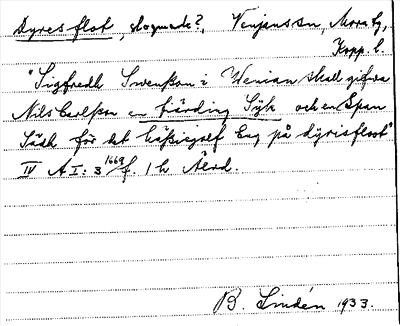 Dyresflot, slogmark?, Venjans sn, Mora tg,
Kopp. l.
"Sigfredh Swenßon i Wenian skall gifwa
Nils Carlßon en fiärding Sijk och en Span
Sädh för det håßiggiel Eng på dyrisfloot"
IV A I: 3 1669 f. 1 h Älvd.
B. Lindén 1933.